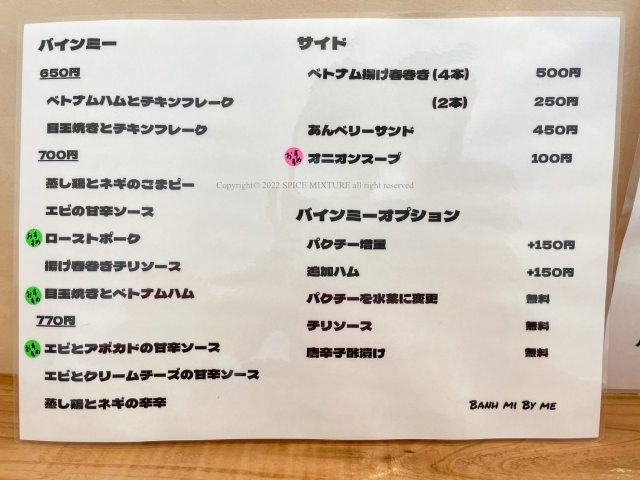 バインミー
650円
ベトナムハムとチキンフレーク
目玉焼きとチキンフレーク
700円
蒸し鶏とネギのごまピー
エビの甘辛ソース
おすすめ ローストポーク
揚げ春巻きチリソース
おすすめ 目玉焼きとベトナムハム
770円
おすすめ エビとアボカドの甘辛ソース
エビとクリームチーズの甘辛ソース
蒸し鶏とネギの辛辛
サイド
ベトナム揚げ春巻き(4本) 500円
(2本) 250円
あんベリーサンド 450円
おすすめ オニオンスープ 100円
Copyright© 2022 SPICE MIXTURE all right reserved
バインミーオプション
パクチー増量 +150円
追加ハム +150円
パクチーを水菜に変更 無料
チリソース 無料
唐辛子酢漬け 無料
BANH MI BY ME